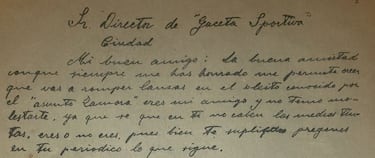 Sr. Director de "Gaceta Sportiva"
Ciudad
Mi buen amigo: La buena amistad
conque siempre me has honrado me permite creer
que vas a romper lanzas en el pleito conocido por
el "asunto Zamora" eres mi amigo y no temo mo-
lestarte, ya que se que en ti no caben las medias tin-
tas, eres o no eres, pues bien te suplico pregones
en tu periodico lo que sigue.